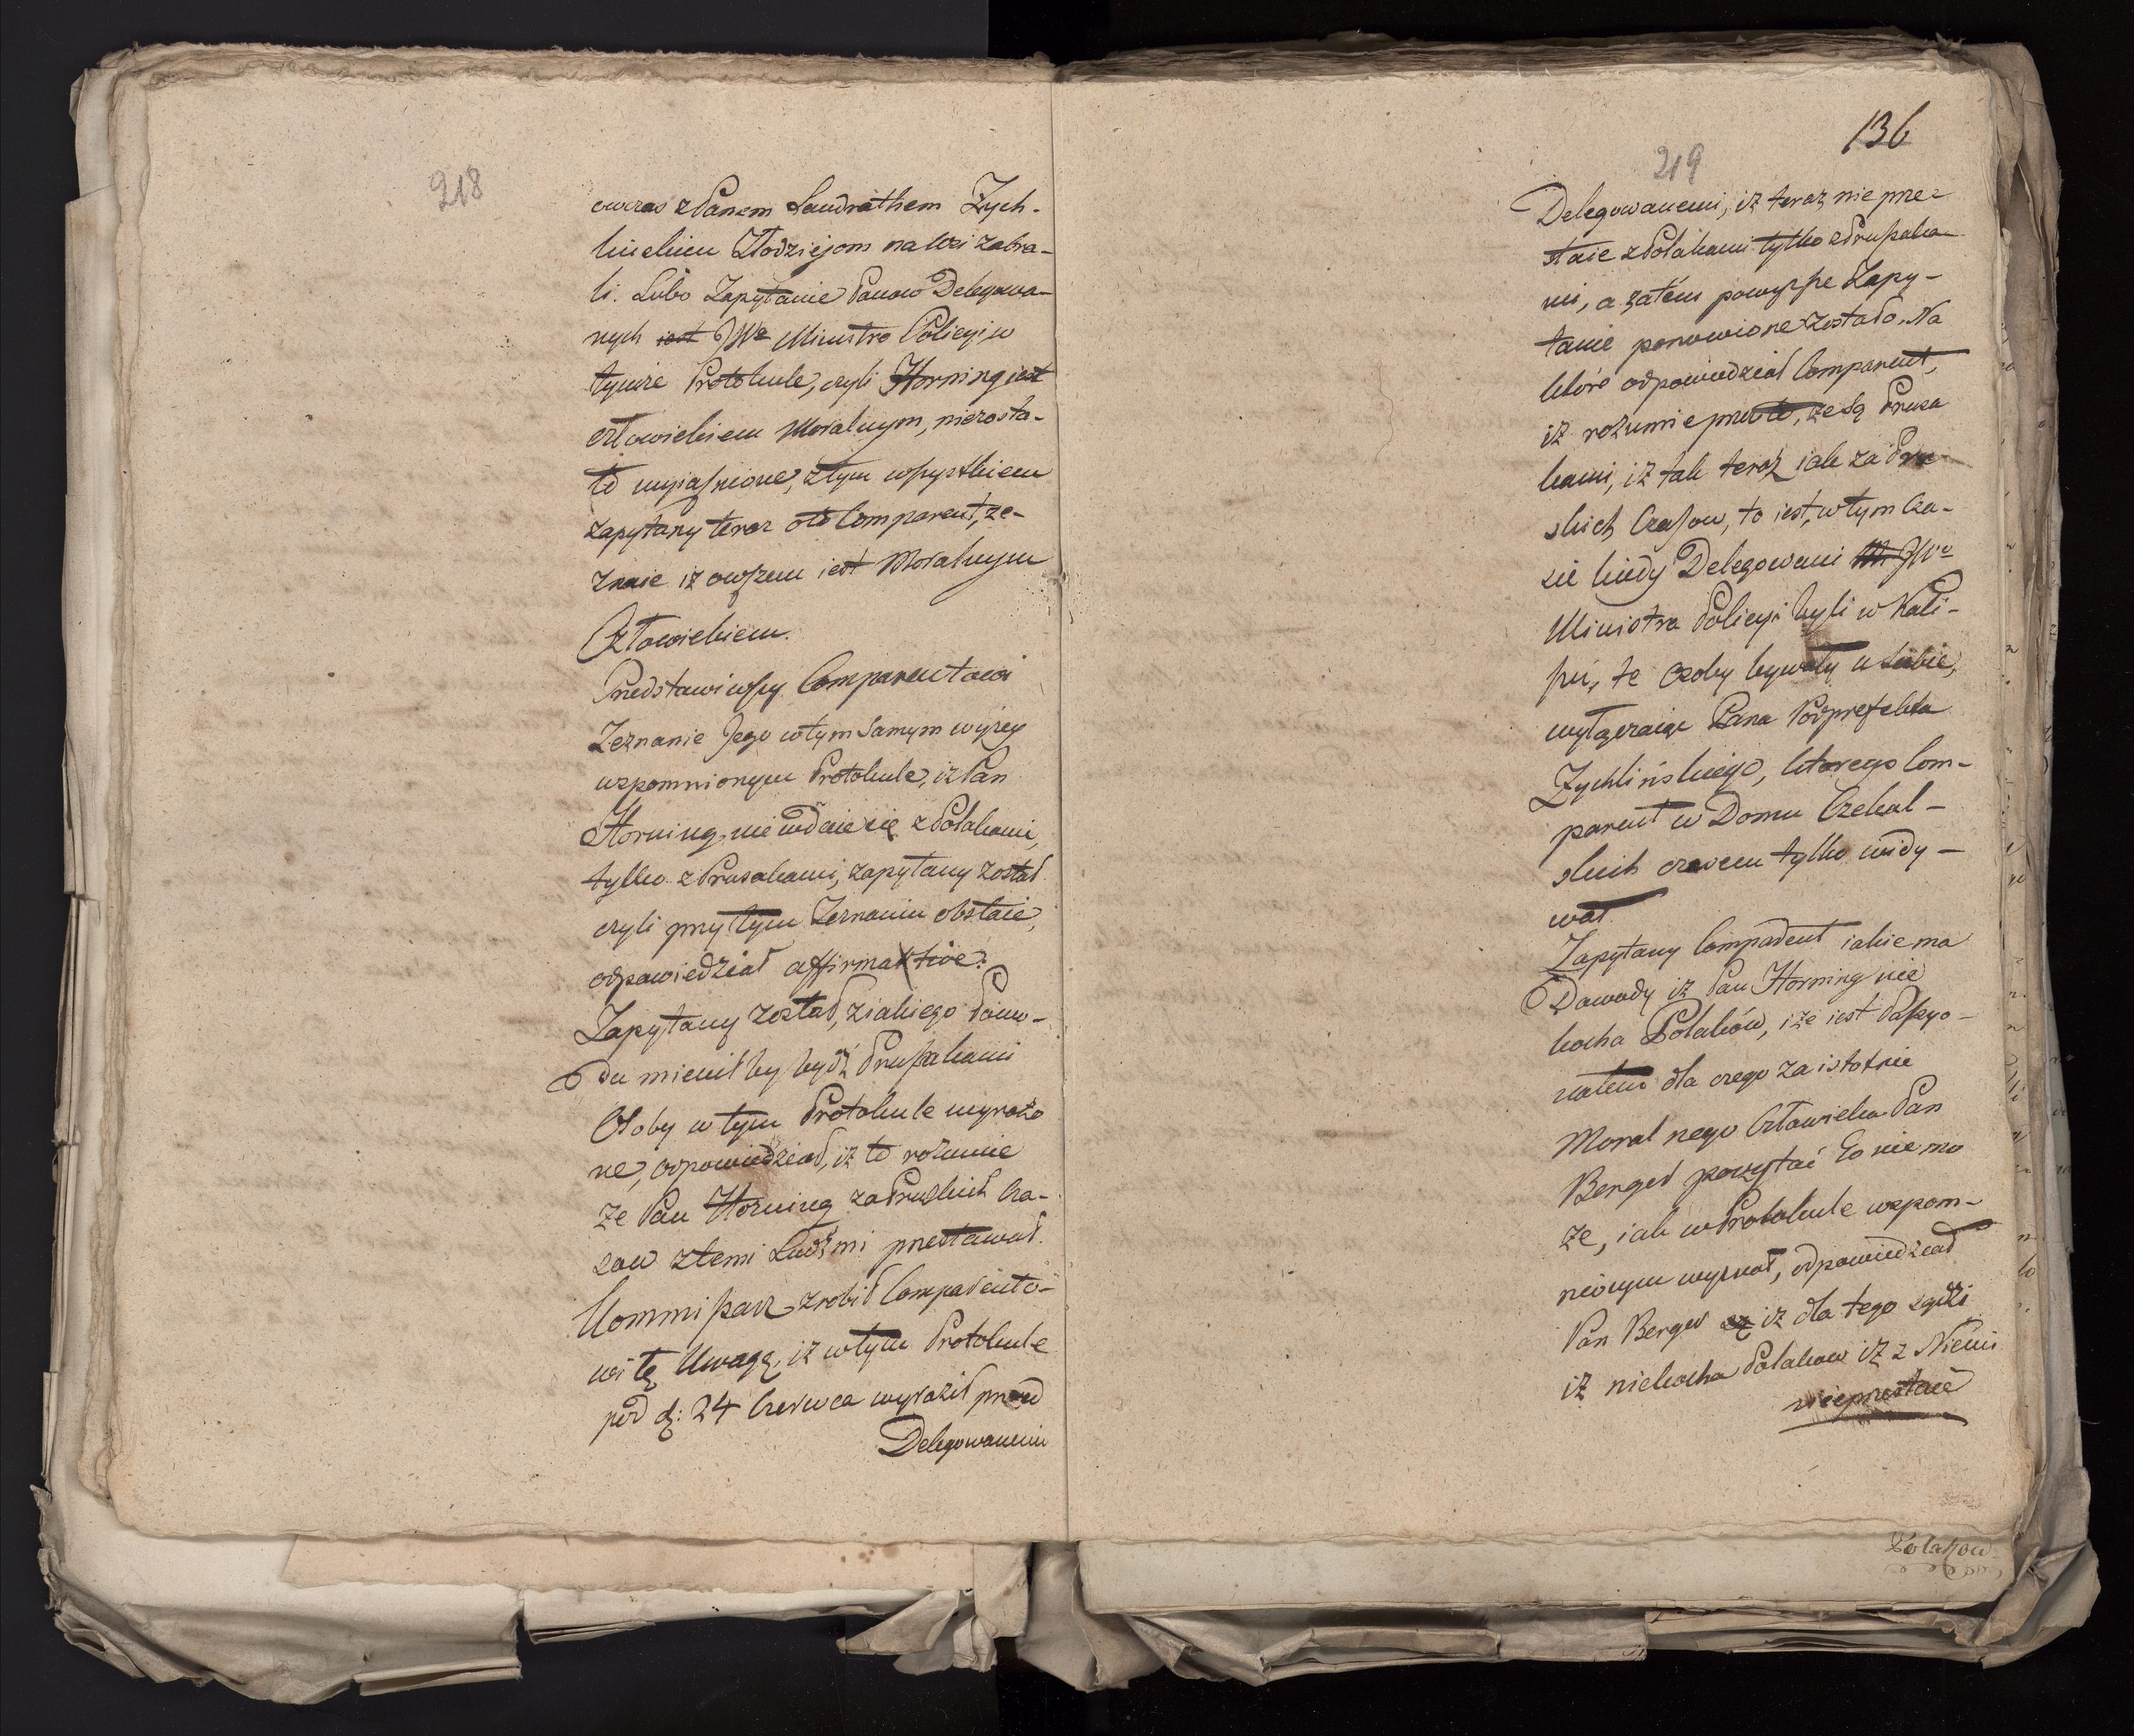 218
owczas z Panem Landrathem Zych-
linskim Złodziejom na Wsi zabra-
li. Lubo Zapytanie Panow Delegowa-
nych iest JWo Ministra Policyi w
tymże Protokule, czyli Horning iest
człowiekiem Moralnym, niezosta-
ło wyiaśnione, z tym wszystkiem
zapytany teraz o to Comparent, ze-
znaie iż owszem iest Moralnym
Człowiekiem.
Przedstawiwszy Comparentowi
Zeznanie Jego w tym Samym wyżey
wspomnionym Protokule, iż Pan
Horning nie wdaie się z Polakami,
tylko z Prusakami, zapytany został
czyli przy tym Zeznaniu obstaie,
odpowiedział affirmative.
Zapytany został, z iakiego Powo-
du mienił by bydź Prusakami
Osoby w tym Protokule wyrażo
ne, odpowiedział, iż to rozumie
że Pan Horning za Pruskich Cza-
sow z temi Ludźmi przestawał.
Kommissarz zrobił Comparento-
wi tę Uwagę, iż w tym Protokule
pod d: 24 Czerwca wyraził przed
Delegowanemi
136
219
Delegowanemi, iż teraz nie prze-
staie z Polakami tylko z Prusaka-
mi, a zatém powyższe Zapy-
tanie ponowione zostało. Na
które odpowiedział Comparent,
iż rozumie przez to, że są Prusa
kami, iż tak teraz iak za Pru-
skich Czasow, to iest, w tym Cza-
sie kiedy Delegowani JWo
Ministra Policyi byli w Kali-
szu, te Osoby bywały u Siebie,
wyłączaiąc Pana Podprefekta
Zychlińskiego, którego Com-
parent w Domu Czekal-
skich czasem tylko widy-
wał.
Zapytany Comparent iakie ma
Dowody iż Pan Horning nie
kocha Polaków, i że iest Passyo-
natem dla czego za istotnie
Moralnego Człowieka Pan
Berger poczytać Go nie mo
że, iak w Protokule wspom-
nionym wyznał, odpowiedział
Pan Berger iż dla tego sądzi
iż niekocha Polakow iż z Niemi
nieprzestaie
Polakow